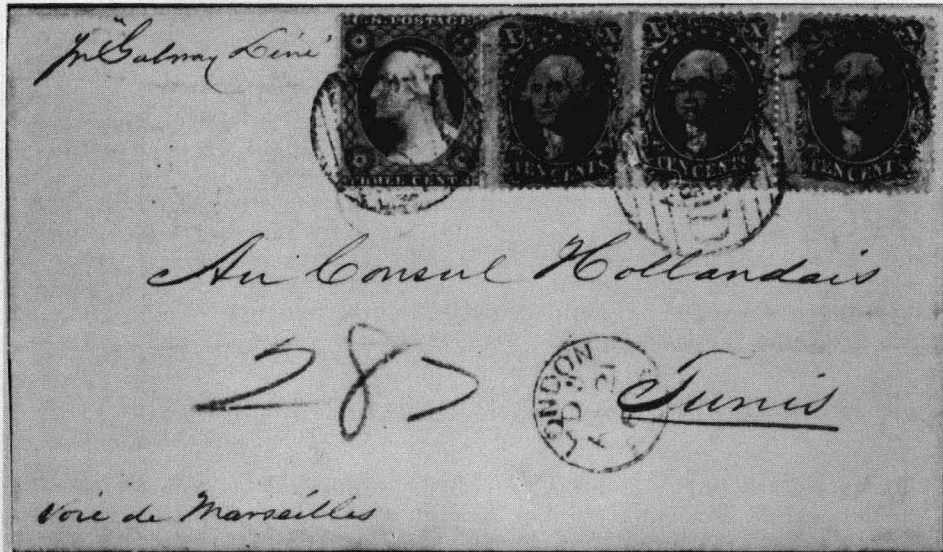 pr "Galway Line"
U.S. POSTAGE
X X X X X X
THREE CENTS
TEN CENTS TEN CENTS TEN CENTS
Au Consul Hollandais
287
LONDON
Tunis
voie de Marseilles